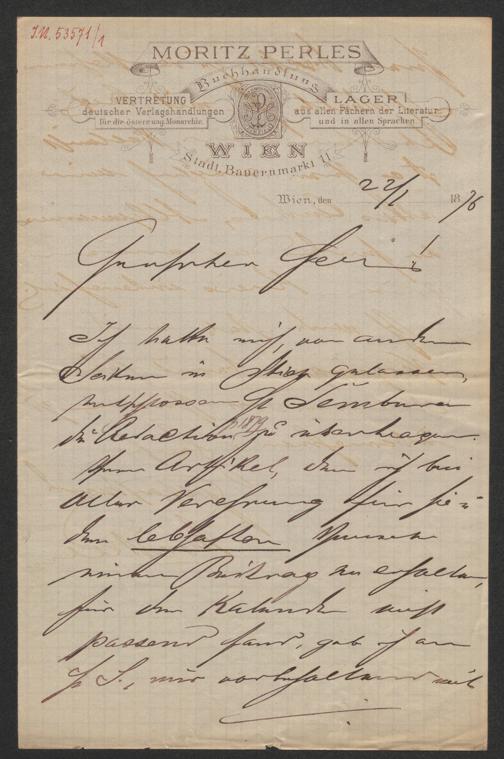 J.N. 53571/1
MORITZ PERLES
Buchhandlung
VERTRETUNG
deutscher Verlagshandlungen
für die österr. ung. Monarchie.
LAGER
aus allen Fächern der Literatur
und in allen Sprachen
WIEN
Stadt, Bauernmarkt 11
Wien, den 22/1 1876
Geehrter Herr!
Ich hatte mich, von anderen
Seiten im Stich gelassen,
entschlossen H
die Redaction zu übertragen.
Ihren Artikel, den ich bei
aller Verehrung für Sie u
dem lebhaften Wunsch
einen Beitrag zu erhalten,
für den Kalender nicht
passend fand, gab ich an
H S., mir vorbehaltend mit